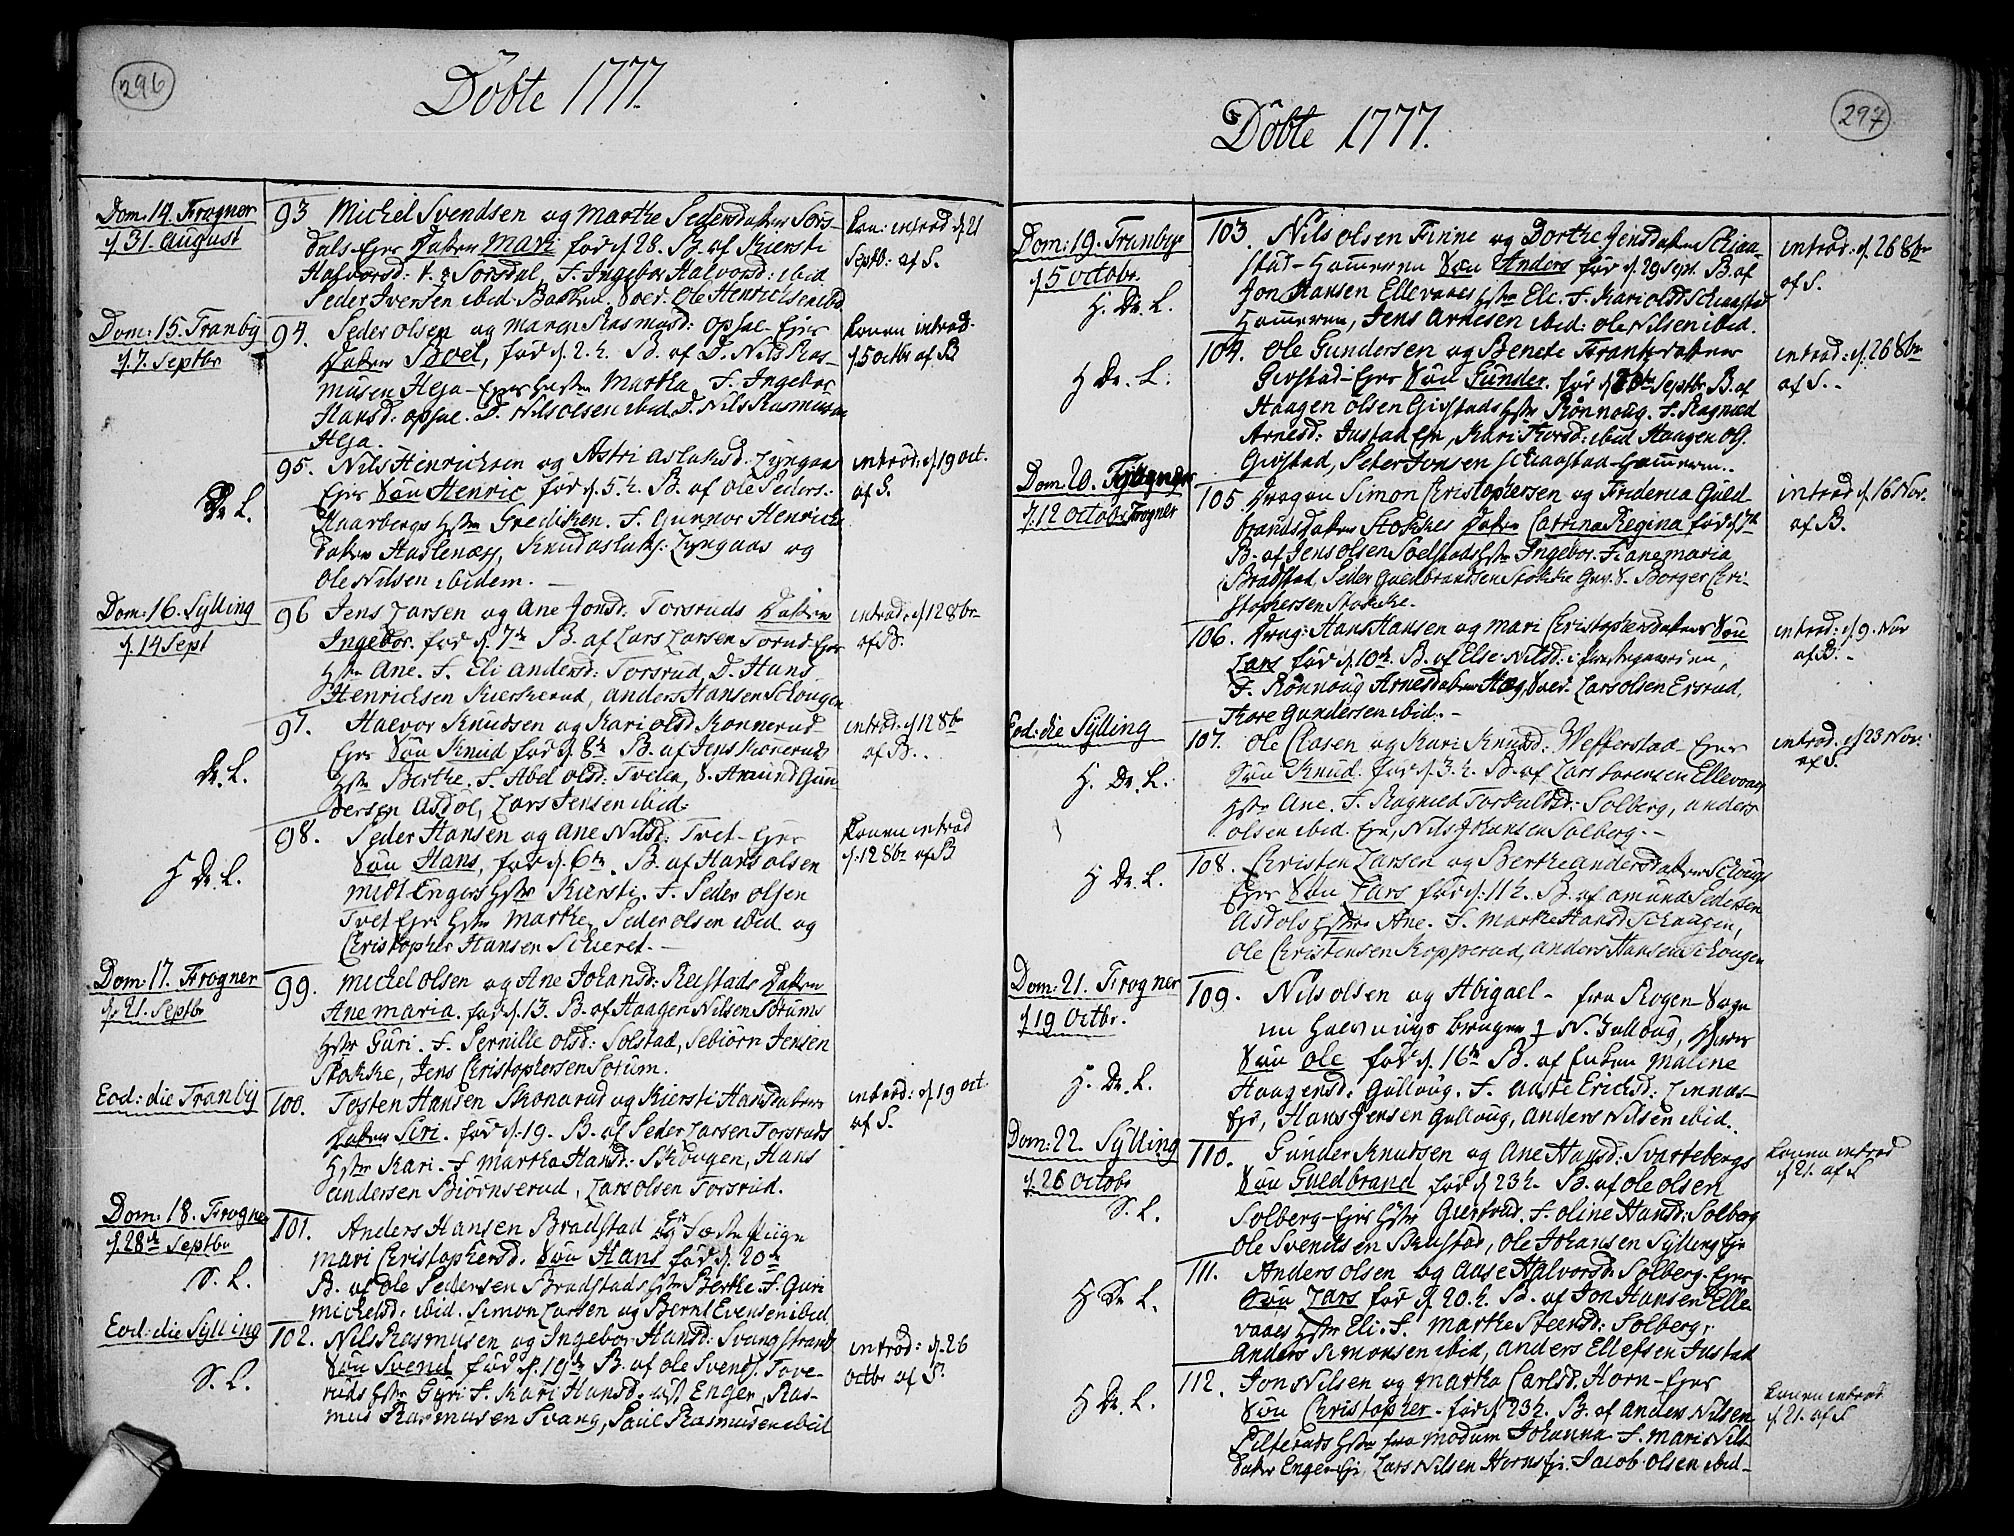 296
Döbte 1777.
Dom: 14. Frogner
d. 31. august
93 Michel Svendsen og Marthe Pedersdatter Sørs-
dals-Ejer datter Mari fød d. 28. B. af Kiersti
Halvorsd: Sørsdal, F. Ingebor Halvorsd: ibid
Peder Iversen ibid. Ole Henrichsen ibid
Kon: introd d. 21
Septb: af S.
Dom: 15. Tranby
d. 7. Septbr
94. Peder olsen og Mari Rasmusd: opsal-Ejer
datter Boel, fød d. 2. B. af Nils Ras-
musen Heja-Ejer hstr Martha, F. Ingebor
Hansd: opsal. D. Nils olsen ibid D. Nils Rasmusen
Heja.
Konen introd.
d. 5 octbr af B
95. Nils Henrichsen og Astri aslaksd: Lyngaas
Ejer Søn Henric fød d. 5. B. af ole Peders:
Haarbergs hstr Grediken. F. Gunnor Henrichs
datter Haslenæss, Knud aslaks: Lyngaas og
Ole Nilsen ibidem.
introd: d. 19 oct.
af S.
Dr. L.
Dom: 16. Sylling
d. 14 Sept
96 Jens Larsen og Ane Jonsd. Torsruds datter
Ingebor. fød d. 7de B. af Lars Larsen Torsrud-Ejer
hstr Ane. F. Eli andersd: Torsrud, D. Hans
Henrichsen Kierkerud, anders Hansen Schougen
introd: d. 12 8br
af B.
97. Halvor Knudsen og Kari olsd Konnerud-
Ejer Søn Knud fød d. 8de B. af Jens Koneruds
hstr Berthe. F. Abel olsd: Tveta, S. Amund Gun-
dersen Asdøl, Lars Jensen ibid:
introd: d 12 8br
af B.
Dr. L.
98. Peder Hansen og Ane Nilsd: Tvet-Ejer
Søn Hans, fød d. 6te. B. af Hans olsen
midt Engers hstr Kiersti. F. Peder olsen
Tvet Ejer hstr Marthe, Peder olsen ibid og
Christopher Hansen Schieret.
Konen introd
d. 12 8br af B
H Dr. L.
Dom: 17. Frogner
d. 21. Septbr
99. Michel olsen og Ane Johansd: Reistads datter
Ane maria. fød d. 13. B. af Haagen Nilsen Sørums
hstr Guri. F. Pernille olsd: Solstad, Sebiørn Jensen
Stokke, Jens Christophersen Sørum.
Eod: die Tranby
100. Tosten Hansen Skonarud og Kiersti Hansdatter
datter Siri. fød d. 19. B. af Peder Larsen Torsruds
hstr Kari. F Martha Hansd: Skougen, Hans
andersen Biørnserud, Lars olsen Torsrud.
introd: d 19 oct.
af S.
Dom: 18. Frogner
d. 28de Septbr
101. Anders Hansen Bradstad og Fæste Pige
Mari Christophersd. Søn Hans fød d. 20de
B. af ole Pedersen Bradstads hstr Berthe. F. Guri
michelsd: ibid. Simon Larsen og Bernt Evensen ibid
S. L.
Eod: die Sylling
102. Nils Rasmusen og Ingebor Hansd: Svangstrand
Søn Svend fød d. 19de B. af ole Svends. Tove-
ruds hstr Gyri F. Kari Hansd. Enger, Ras-
mus Rasmusen Svang, Paul Rasmusen ibid
introd: d. 26
octbr af S.
S. L.
297
Döbte 1777.
Dom: 19. Tranby
d 5 octobr.
H. Dr. L.
103. Nils olsen Finne og Dorthe Jensdatter Schiaa-
stad-Hammeren Søn Anders fød d. 29 Sept. B. af
Jon Hansen Ellevaaes hstr Eli. F. Kari olsd Schiaastad
Hammeren, Jens Arnesen ibid: ole Nilsen ibid.
introd: d. 26 8br
af S.
104. Ole Gundersen og Benete Frantzdatter
Givstad-Ejer Søn Gunder. fød d Septbr B. af
Haagen olsen Givstads hstr Rønnoug. F. Ragnild
Arnesd: Justad Eje, Kari Thorsd: ibid Haagen og
Givstad, Peder Jonsen Schiaastad-Hammeren..
introd: d. 26 8br
af S.
H Dr. L.
Dom: 20. Frogner
d. 12 octobr Frogner
105 Dragon Simon Christophersen og Friderica Guld-
brandsdatter Stokkes datter Catrina Regina fød d. 7de
B. af Jens olsen Solstads hstr Ingebor. F. ane maria
Bradstad Peder Guldbrandsen Stokke S. Borger Chri-
stophersen Stokke.
introd d. 16 Nov.
af B.
106. Drag: Hans Hansen og mari Christophersdatter Søn
Lars fød d. 10de. B. af Else Nilsd: i Præstegaarden,
F. Rønnoug Arnesdatter Haug, Lars olsen Ersrud,
Thore Gundersen ibid.
introd: d. 9. Nov
af B.
Eod: die Sylling
107. Ole Olasen og Kari Knudsd: Wefferstad Ejer
Søn Knud. fød d. 3. B. af Lars Larsen Ellevaaes
hstr Ane. F. Ragnild Torkildsd: Solberg, anders
olsen ibid. Eje, Nils Johansen Solberg.
introd: d 23 Nov:
af S.
H. Dr. L.
108. Christen Larsen og Berthe andersdatter Schougs
Ejer Søn Lars fød d. 11. B. af amund Pedersen
Asdøls hstr Ane. F. Marthe Hansd Schougen,
Ole Christensen Kopperud, anders Hansen Schougen
H Dr. L.
Dom: 21. Frogner
d 19 octbr.
109. Nils olsen og Abigael - fra Rogen Sogn
nu N. Gulloug,
Søn Ole fød d. 16de B. af Enken Maline
Haagensd: Gulloug. F. aase Ericsd: Linnæs-
Eje, Hans Jensen Gulloug, anders Nilsen ibid.
H. Dr. L.
Dom: 22. Sylling
d. 26 octobr
110. Gunder Knudsen og Ane Hansd: Svartebergs
Søn Guldbrand fød d 23. B. af ole olsen
Solberg-Ejer hstr Giertrud. F. oline Hansd: Solberg
Ole Svendsen Skustad, ole Johansen Sylling Eje
Konen introd
d 21. af S
S. L.
111. Anders olsen og aase Halvorsd. Solberg. Ejer
Søn Lars fød d. 20. B. af Jon Hansen Elle-
vaaes hstr Eli. F. Marthe Steensd: Solberg,
anders Simonsen ibid, anders Ellefsen Justad
H Dr L.
112. Jon Nilsen og Martha Carlsd. Horn-Ejer
Søn Christopher. fød d 23. B. af anders Nilsen
Pilteruds hstr fra Modum Johanna. F. mari Nils-
datter Enger Eje, Lars Nilsen Horns Eje. Jacob olsen ibid
Konen introd
d. 21. af S
H Dr. L.